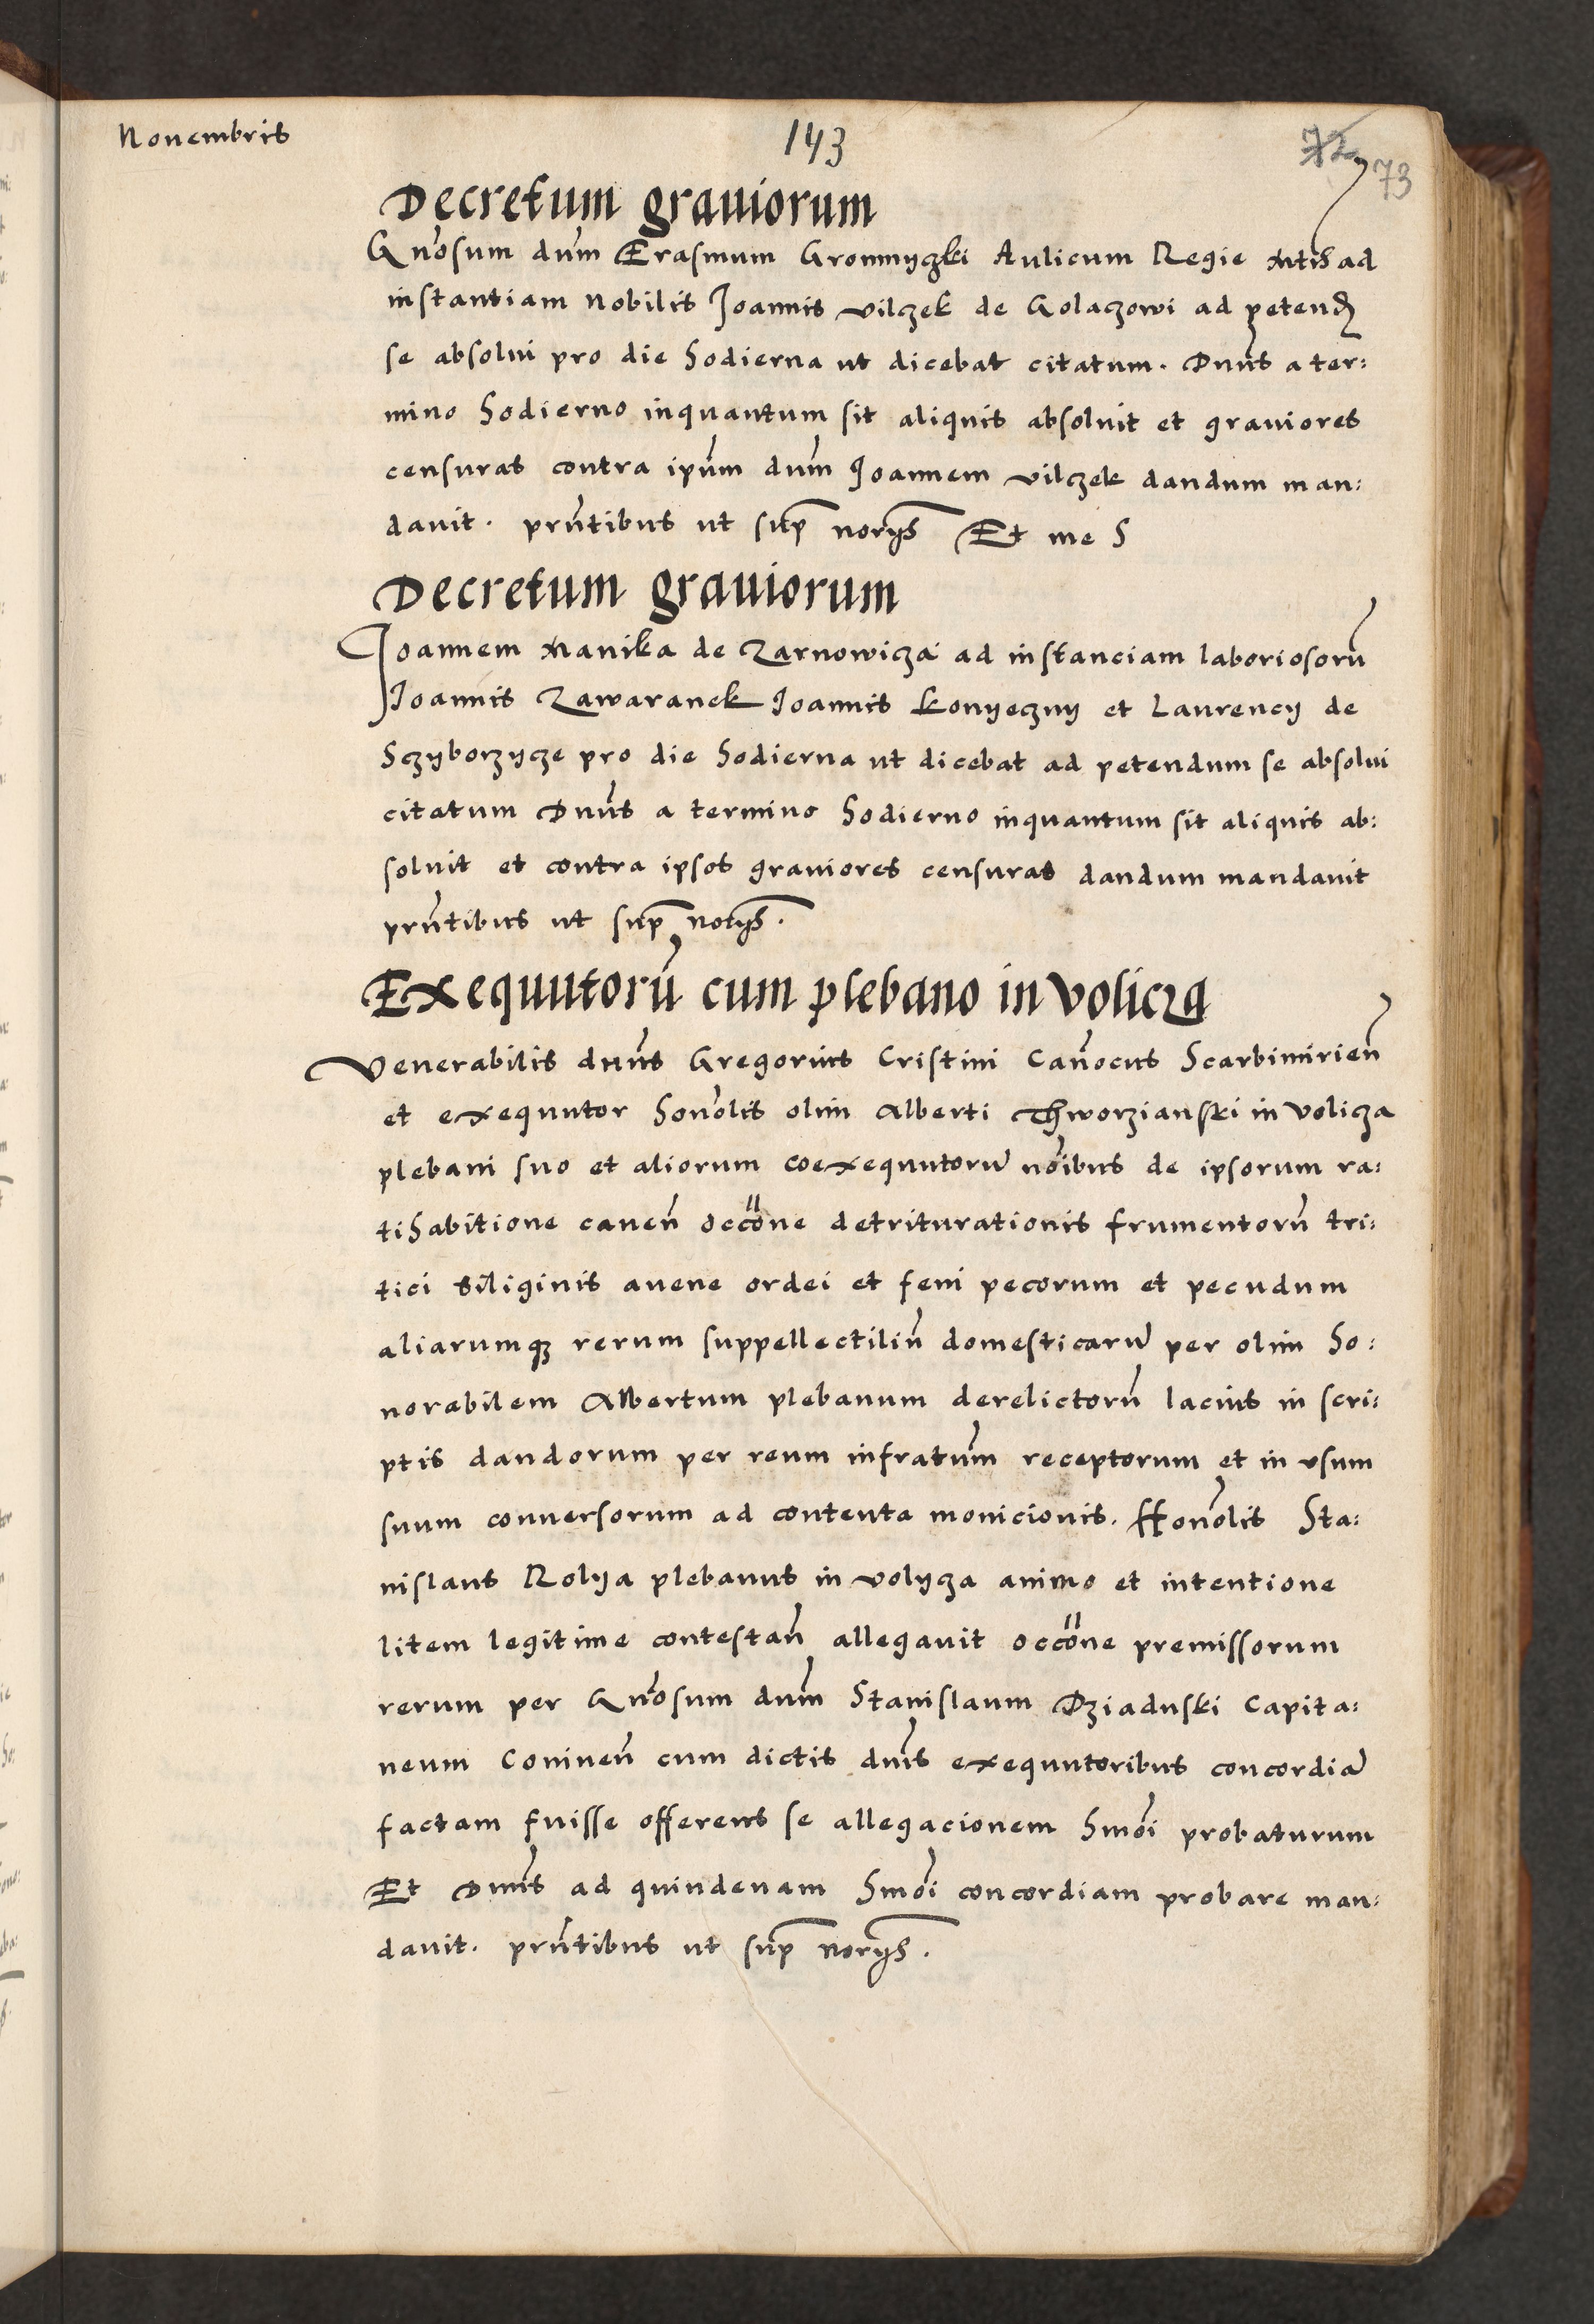 Nouembris
143
72
73
Decretum grauiorum
Gnosum dnm Erasmum Gromnyczki Aulicum Regie Mtis ad
instantiam Nobilis Joannis vilczek de Golaczowi ad petend
se absolui pro die hodierna ut dicebat citatum. Dnus a ter:
mino hodierno inquantum sit aliquis absoluit et grauiores
censuras contra ipsum dnm Joannem vilczek dandum man:
dauit. prntibus ut supra norijs Et me S
Decretum grauiorum
Joannem Manika de Zarnowicza ad instanciam laboriosoru
Joannis Zawaranek Joannis Konyeczny et Laurencij de
Sczyborzycze pro die hodierna ut dicebat ad petendum se absolui
citatum Dnus a termino hodierno inquantum sit aliquis ab:
soluit et contra ipsos grauiores censuras dandum mandauit
prntibus ut supra norijs.
Exequutoru cum plebano in Volicza
Venerabilis dnus Gregorius Cristini Canocus Scarbimirien
et exequutor honolis olim Alberti Thworzianski in Volicza
plebani suo et aliorum coexequutoru noibus de ipsorum ra:
tihabitione cauen occone detriturationis frumentoru tri:
tici siliginis auene ordei et feni pecorum et pecudum
aliarumqz rerum suppellectiliu domesticaru per olim ho:
norabilem Albertum plebanum derelictoru lacius in scri:
ptis dandorum per reum infratum receptorum et in vsum
suum conuersorum ad contenta monicionis. Honolis Sta:
nislaus Rolya plebanus in Volycza animo et intentione
litem legitime contestan allegauit occone premissorum
rerum per Gnosum dnm Stanislaum Dziaduski Capita:
neum Coninen cum dictis dnis exequutoribus concordia
factam fuisse offerens se allegacionem hmoi probaturum
Et Dnus ad quindenam hmoi concordiam probare man:
dauit. prntibus ut supra norijs.